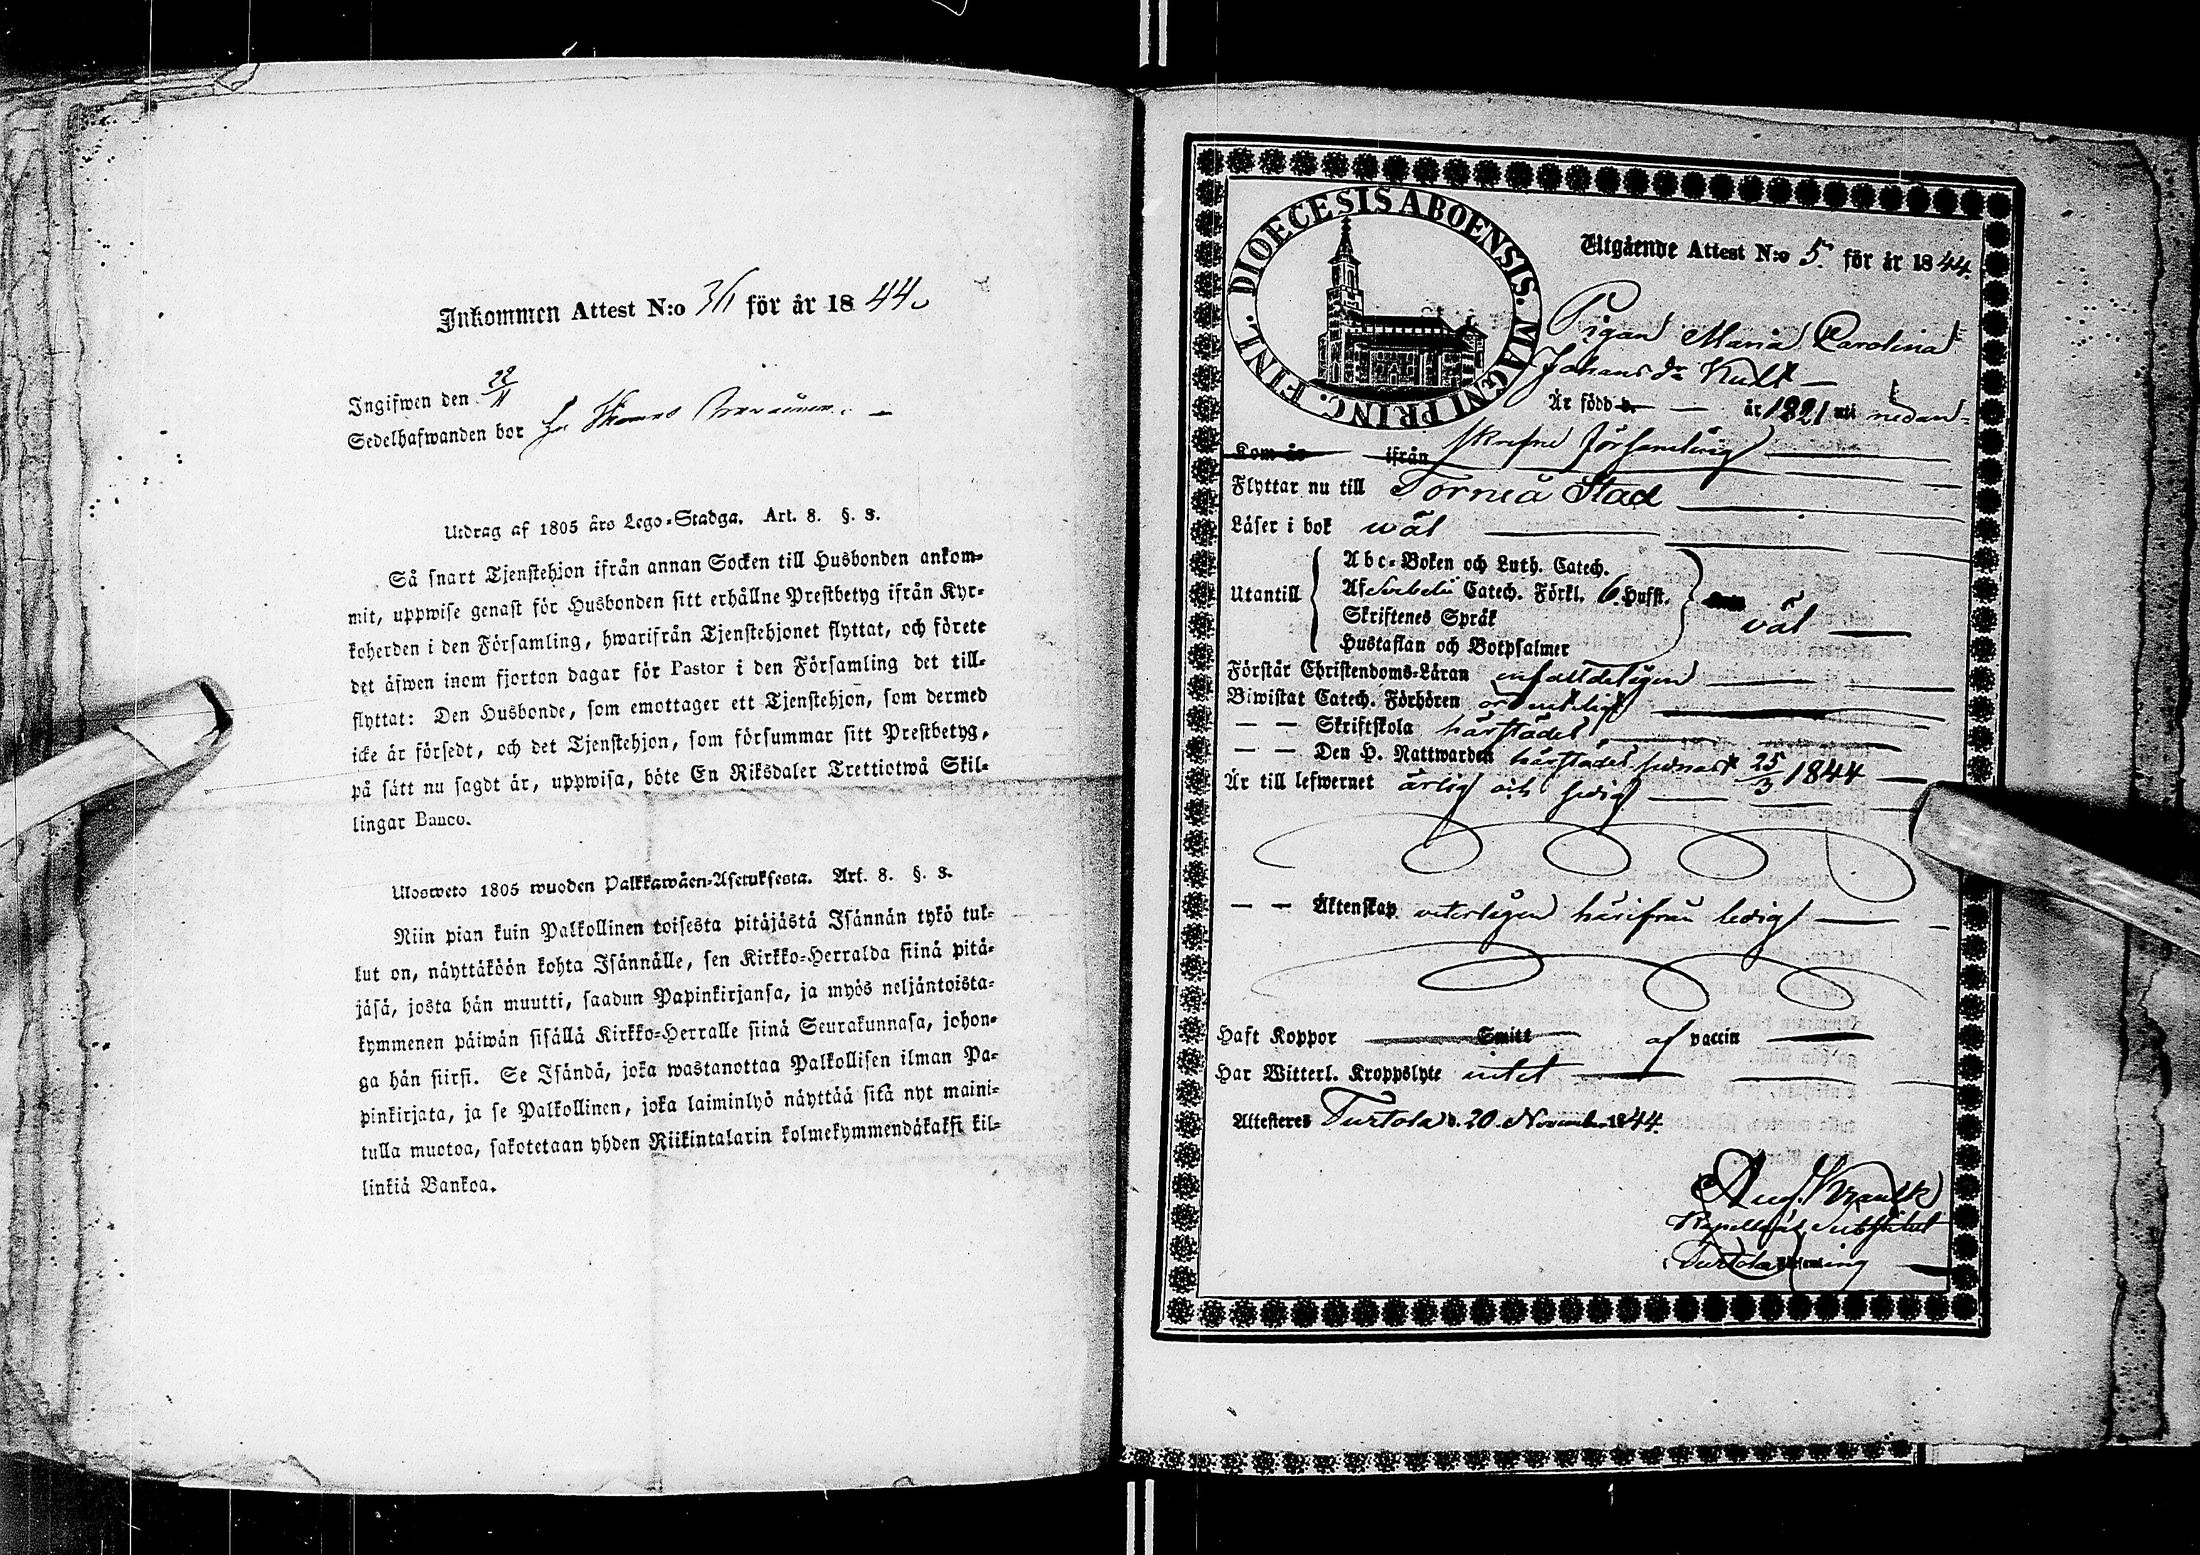 Inkommen Attest N:o för år 1844.
Ingifwen den 22/11
Sedelhafwanden bor hr Thomas
Utdrag af 1805 års Lego-Stadga. Art. 8. §. 3.
Så snart Tjenstehjon ifrån annan Socken till Husbonden ankom-
mit, uppwise genast för Husbonden sitt erhållne Prestbetyg ifrån Kyr-
koherden i den Församling, hwarifrån Tjenstehjonet flyttat, och förete
det äfwen inom fjorton dagar för Pastor i den Församling det till-
flyttat: Den Husbonde, som emottager ett Tjenstehjon, som dermed
icke är försedt, och det Tjenstehjon, som försummar sitt Prestbetyg,
på sätt nu sagdt är, uppwisa, böte En Riksdaler Trettiotwå Skil-
lingar Banco.
Ulosweto 1805 wuoden Palkkawäen-Asetuksesta. Art. 8. §. 3.
Niin pian kuin Palkollinen toisesta pitäjästä Isännän tykö tul-
lut on, näyttäköön kohta Isännälle, sen Kirkko-Herralda siinä pitä-
jäsä, josta hän muutti, saadun Papinkirjansa, ja myös neljäntoista-
kymmenen päiwän sisällä Kirkko-Herralle siinä Seurakunnasa, johon-
ga hän siirsi. Se Isändä, joka wastanottaa Palkollisen ilman Pa-
pinkirjata, ja se Palkollinen, joka laiminlyö näyttää sitä nyt maini-
tulla muotoa, sakotetaan yhden Riikintalarin kolmekymmendäkaksi kil-
linkiä Bankoa.
DIOECESIS ABOENSIS. MAGNI PRINC. FINL.
Utgående Attest N:o 5. för år 1844.
Pigan Maria Carolina
Johansdr
Är född d. — år 1821 uti nedan-
skrefne församling
Kom år ifrån
Flyttar nu till Torneå Stad
Läser i bok wäl
Utantill
Abc-Boken och Luth. Catech.
Af Swebelii Catech. Förkl. 6. Hufst.
Skriftenes Språk
Hustaflan och Botpsalmer
wäl
Förstår Christendoms-Läran enfaldeligen
Biwistat Catech. Förhören ordentligt
— — Skriftskola härstädes
— — Den H. Nattwarden härstädes senast 25/3 1844
Är till lefwernet ärlig och sedig
— — Äktenskap witterligen härifrån ledig
Haft Koppor Smitt af vaccin
Har Witterl. Kroppslyte intet
Attesteres Turtola d. 20 November 1844.
Aug.
Kapellans Substitut
Turtola Församling